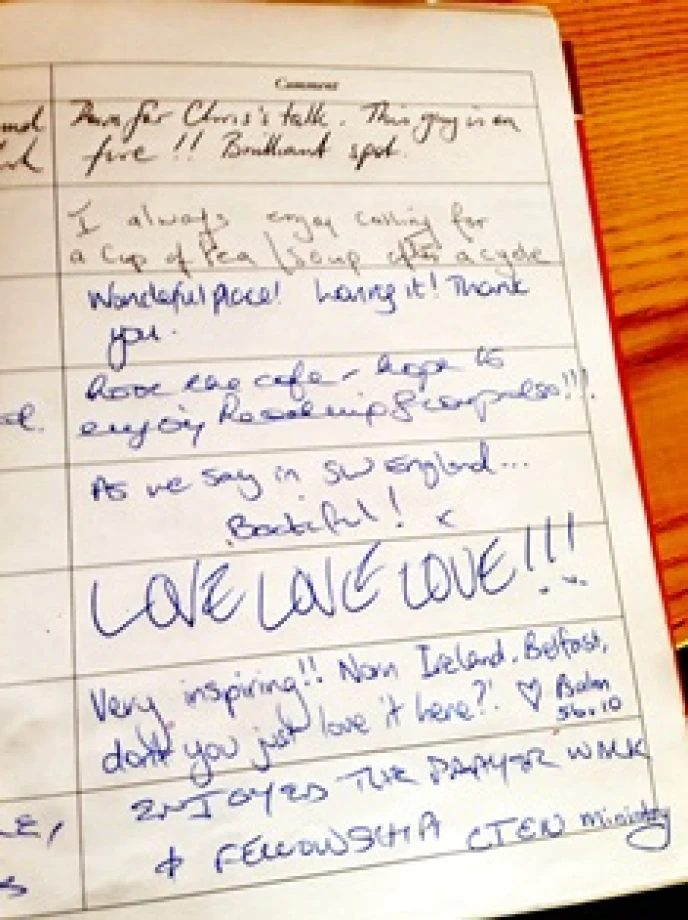 Comment
for Chris's talk. This guy is on
fire !! Brilliant spot.
I always enjoy calling for
a cup of Tea / Soup after a cycle
Wonderful place! Loving it! Thank
you.
Love the cafe - hope to
enjoy
As we say in SW England...
! x
LOVE LOVE LOVE!!!
Very inspiring!! Norn Ireland. Belfast,
don't you just love it here?! ♡ Psalm
56.10
ENJOYED THE PRAYER WALK
& FELLOWSHIP CTEN Ministry